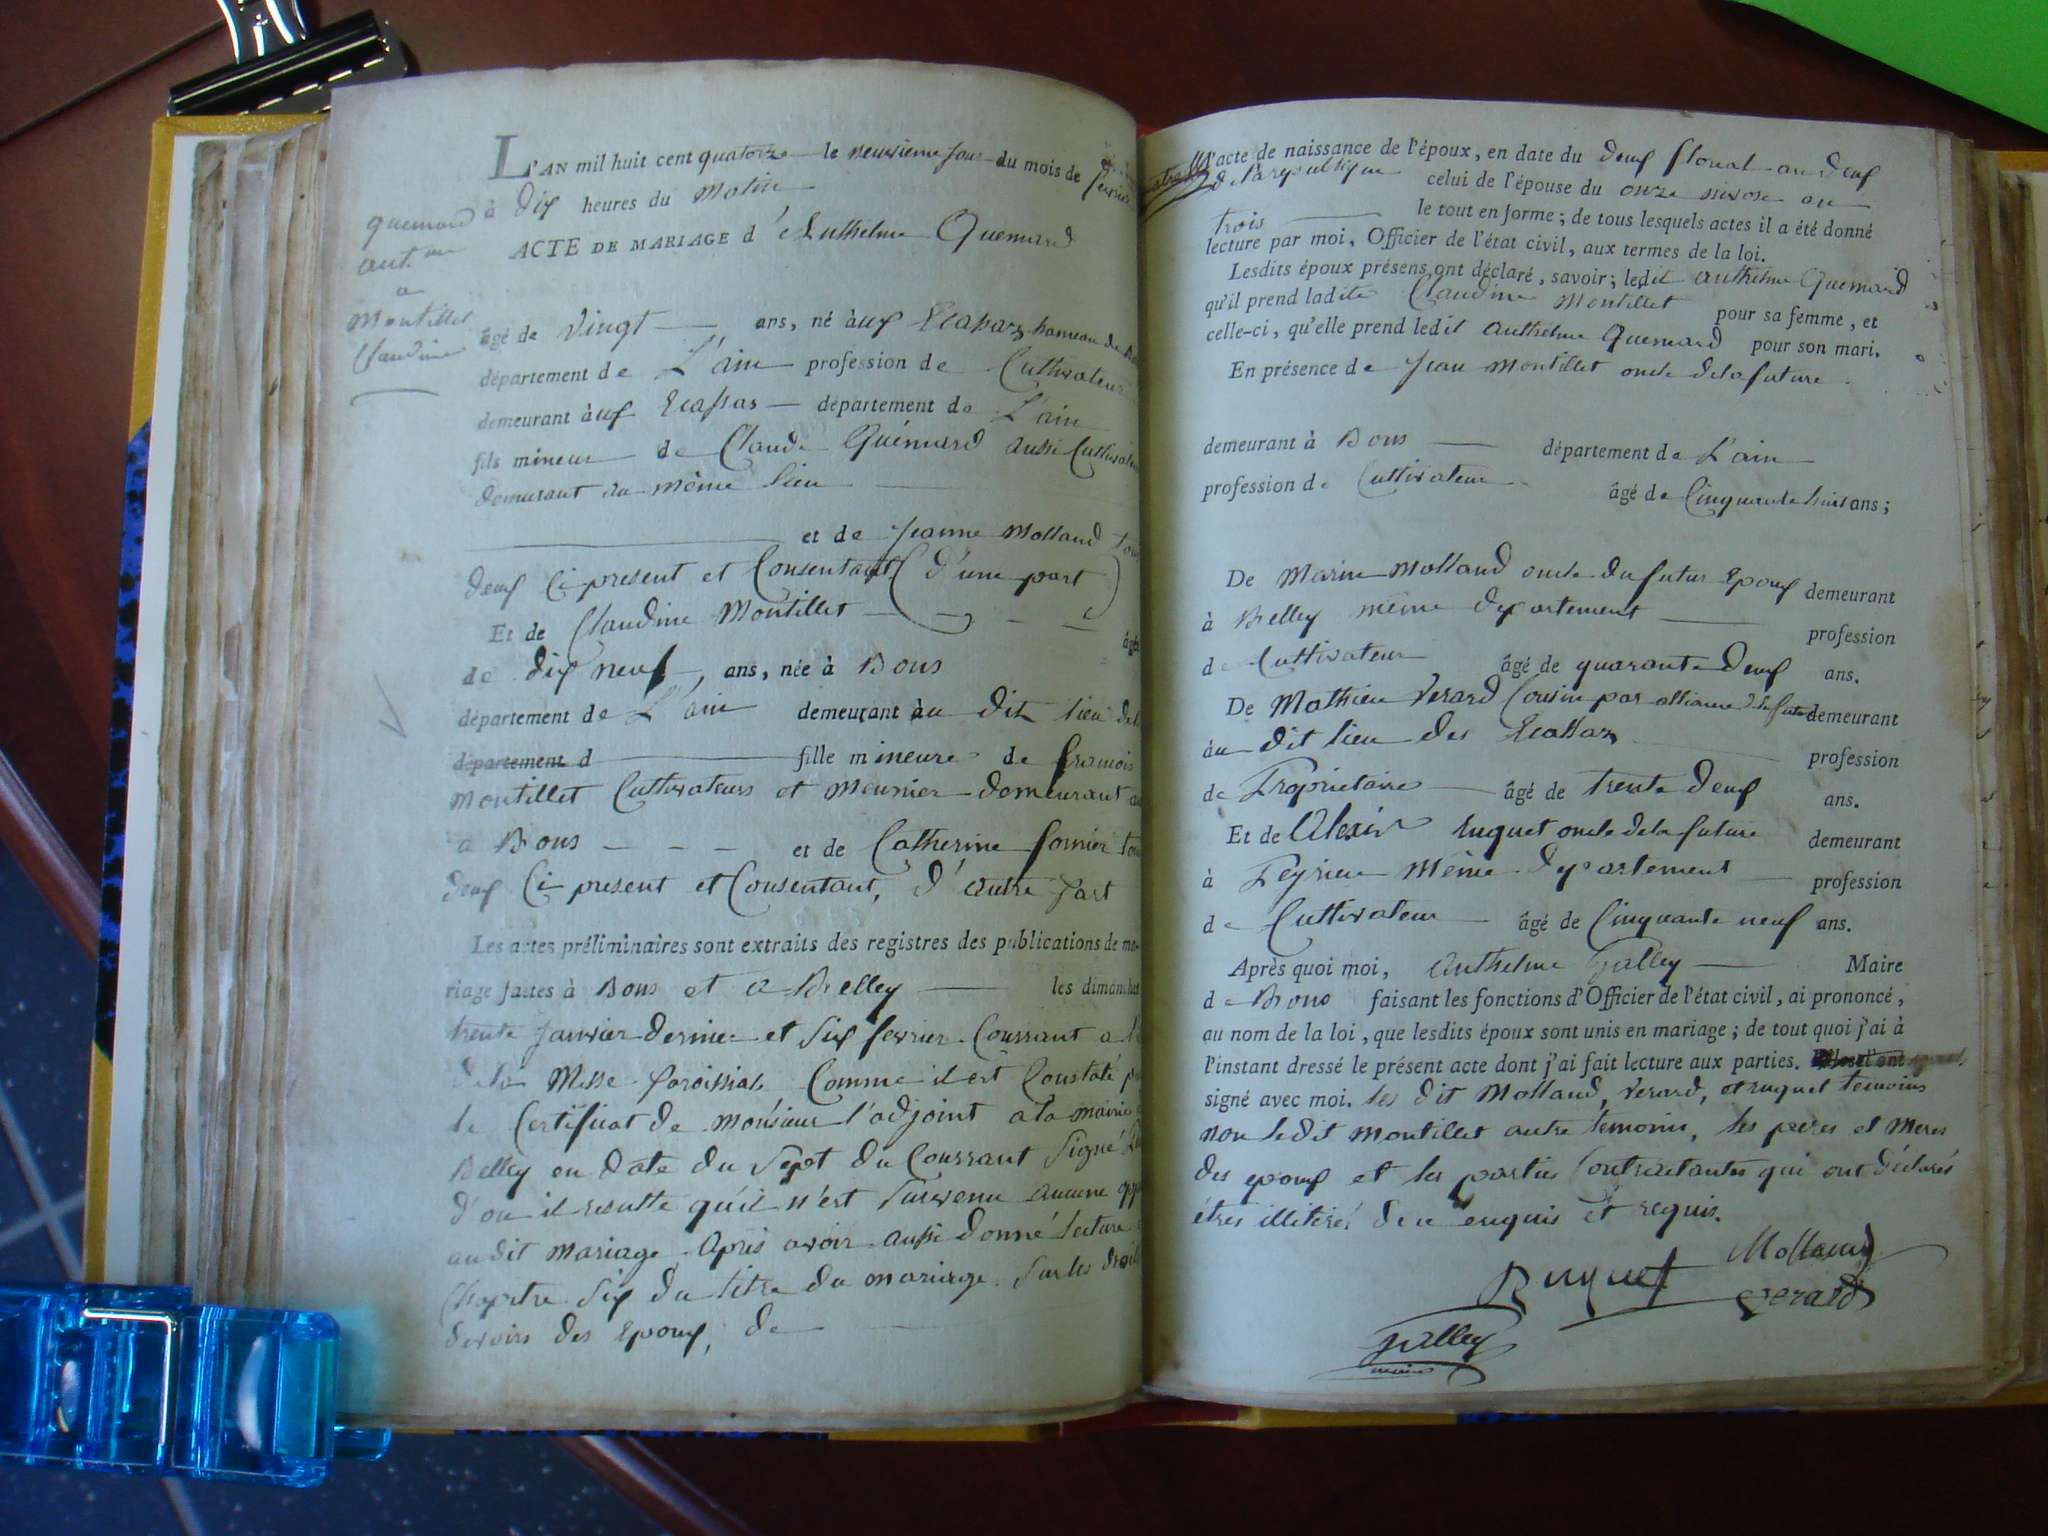 L'AN mil huit cent quatorze le neuvieme jour du mois de fevrier
à dix heures du Matin
ACTE DE MARIAGE d'Anthelme Quemard
quemard
ant.me
a
Montillet
Claudine
âgé de Vingt ans, né aux Ecassaz hameau de
département de L'ain profession de Cultivateur
demeurant aux Ecassas département de L'ain
fils mineur de Claude Quémard aussi Cultivateur
demeurant au même lieu
et de Jeanne Molland tous
deux Ci present et Consentant (d'une part)
Et de Claudine Montillet âgée
de dix neuf, ans, née à Bons
département de L'ain demeurant au dit lieu
département d fille mineure de francois
Montillet Cultivateurs et Meunier demeurant
a Bons et de Catherine fornier tous
deux Ci present et Consentant, d'autre part
Les actes préliminaires sont extraits des registres des publications de ma-
riage faites à Bons et a Belley les dimanches
trente janvier dernier et Six fevrier Courrant a
de la Messe Paroissiale Comme il est Constaté
le Certificat de monsieur l'adjoint a la mairie
Belley en date du Sept du Courrant Signé
d'ou il resulte qu'il n'est Survenu aucune
audit mariage. Après avoir aussi donné lecture
Chapitre Six du titre du mariage. Sur les droits
devoirs des Epoux, de
l'acte de naissance de l'époux, en date du deux floreal an deux
de la republique celui de l'épouse du onze nivose an
trois le tout en forme; de tous lesquels actes il a été donné
lecture par moi, Officier de l'état civil, aux termes de la loi.
Lesdits époux présens ont déclaré, savoir; ledit anthelme Quemard
qu'il prend ladite Claudine Montillet pour sa femme, et
celle-ci, qu'elle prend ledit anthelme Quemard pour son mari.
En présence de Jean Montillet oncle de la future
demeurant à Bons département de L'ain
profession de Cultivateur âgé de Cinquante huit ans;
De Marin Molland oncle du futur Epoux demeurant
à Belley même departement profession
de Cultivateur âgé de quarante deux ans.
De Mathieu Verard Cousin par alliance de la future demeurant
au dit lieu des Ecassaz profession
de Proprietaire âgé de trente deux ans.
Et de Alexis Ruquet oncle de la future demeurant
à Peyrieu Même departement profession
de Cultivateur âgé de Cinquante neuf ans.
Après quoi moi, Anthelme Jalley Maire
de Bons faisant les fonctions d'Officier de l'état civil, ai prononcé,
au nom de la loi, que lesdits époux sont unis en mariage; de tout quoi j'ai à
l'instant dressé le présent acte dont j'ai fait lecture aux parties. Elles l'ont
signé avec moi. les dit Molland, Verard, et ruquet temoins
non ledit Montillet autre temoins, les peres et Meres
des epoux et les parties Contractantes qui ont déclarés
étres illiterés de ce enquis et requis.
Ruquet Molland
Verard
Jalley
maire